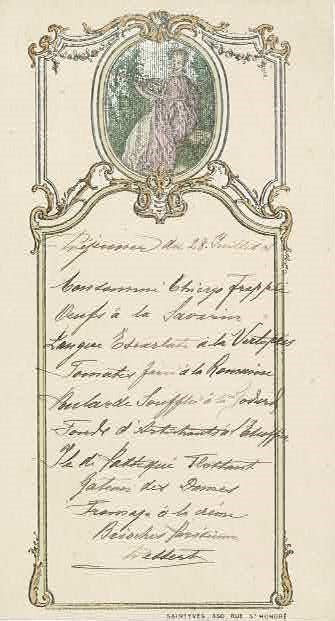 Déjeuner du 28 Juillet
Consommé Thiers frappé
Oeufs à la Savarin
Langue Escarlate à la
Tomates à la Romaine
Poularde Soufflée à la
Fonds d'Artichauts
Ile de Flottant
Gateau des Dames
Fromage à la crème
Brioches Parisienne
Dessert
SAINTYVES, 350, RUE ST HONORÉ